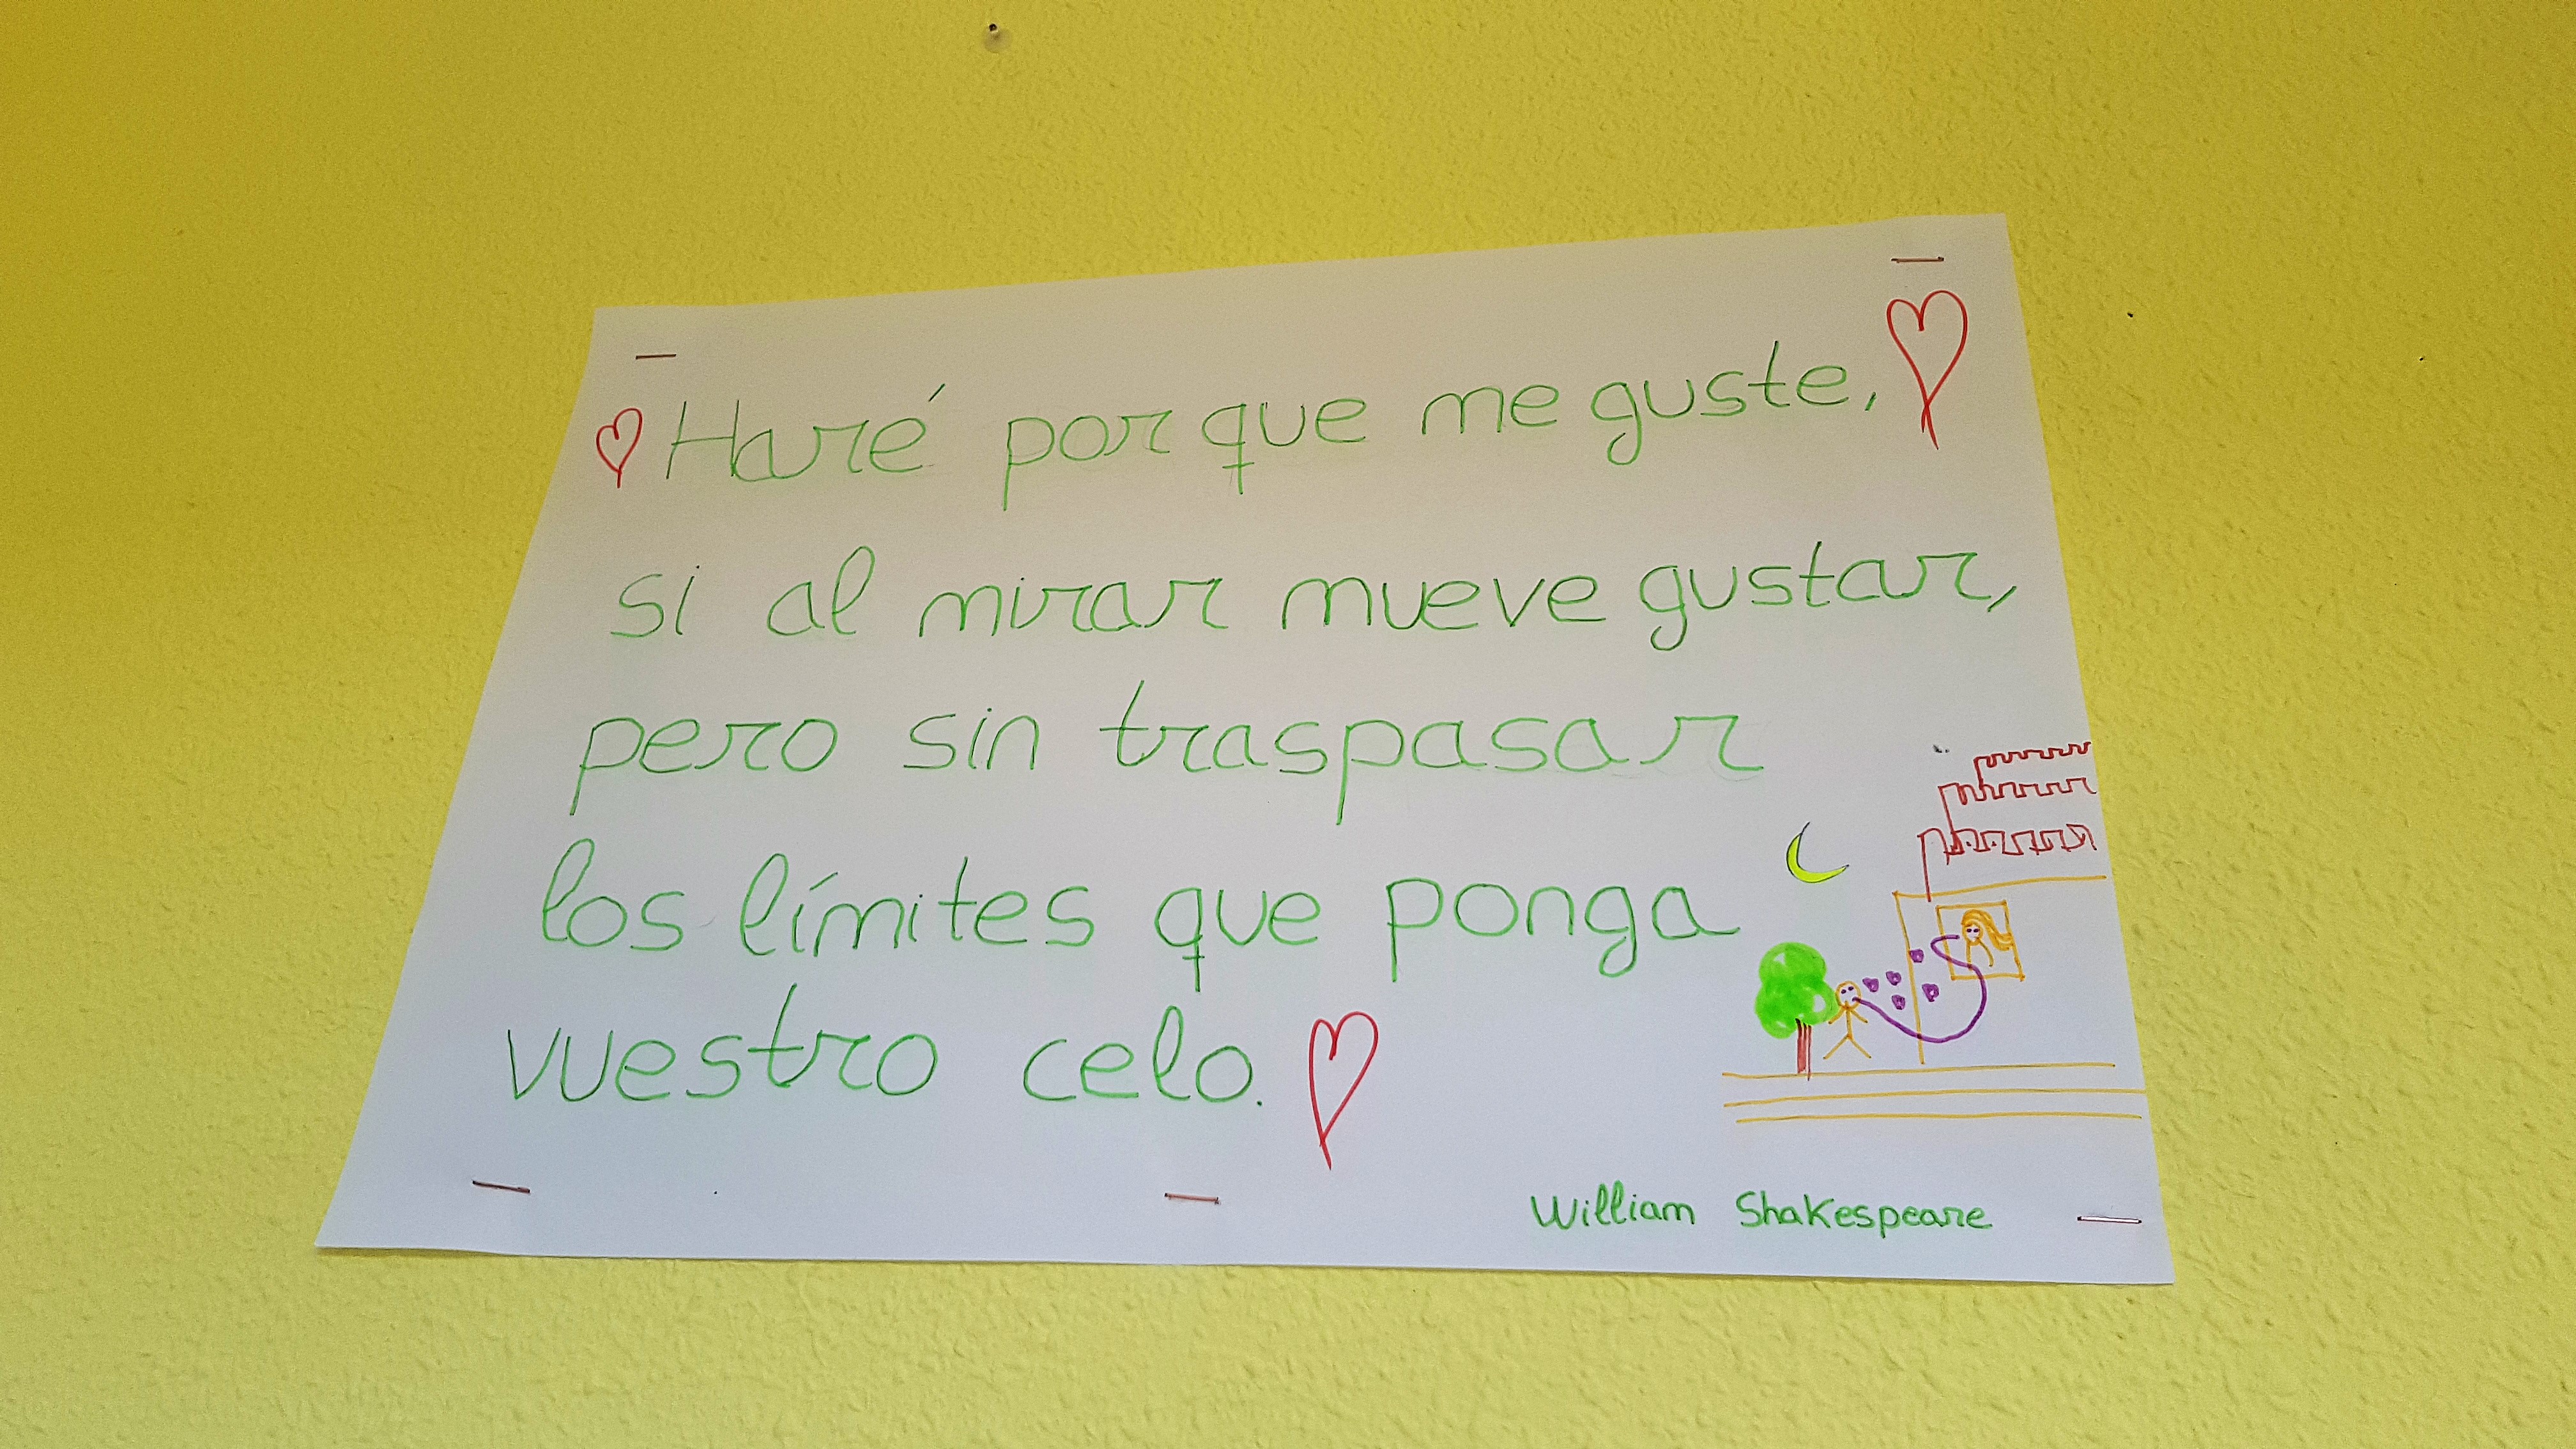 Haré por que me guste,
si al mirar mueve gustar,
pero sin traspasar
los límites que ponga
vuestro celo.
William Shakespeare